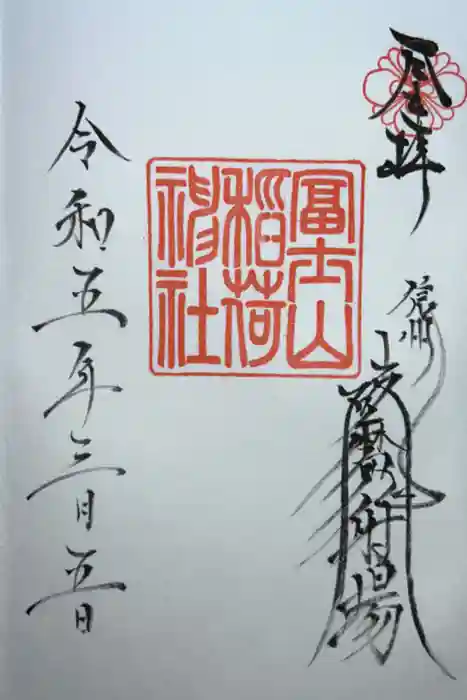 奉拝
信州
冨士山
稲荷
神社
令和五年三月五日